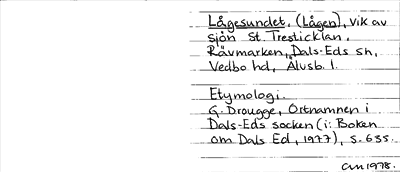 Lågesundet, (Lågen), vik av
sjön St. Tresticklan.
Rävmarken, Dals-Eds sn,
Vedbo hd, Älvsb. l.
Etymologi.
G. Drougge, Ortnamnen i
Dals-Eds socken (i: Boken
om Dals Ed, 1977), s. 635.
1978.